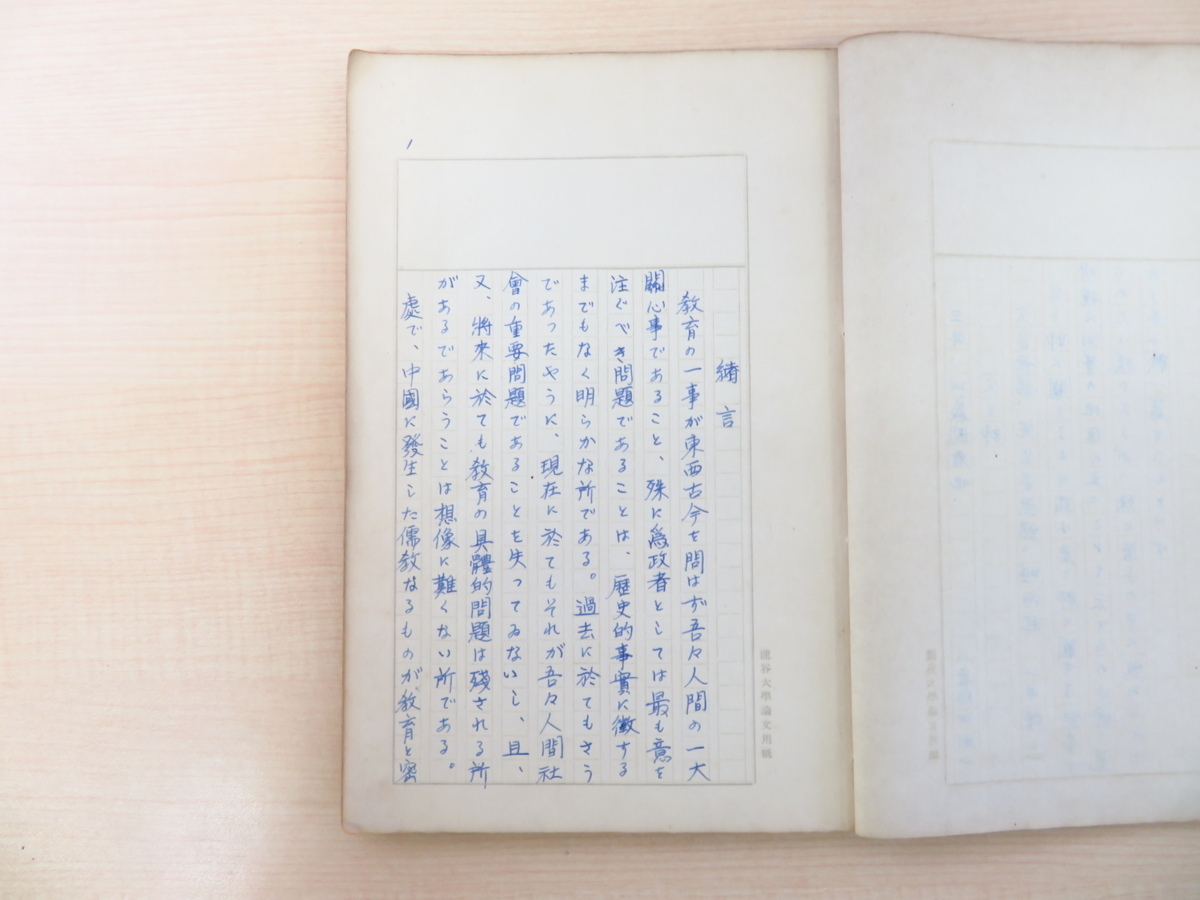 緒言
教育の一事が東西古今を問はず吾々人間の一大
關心事であること、殊に爲政者としては最も意を
注ぐべき問題であることは、歴史的事實に徴する
までもなく明らかな所である。過去に於てもさう
であつたやうに、現在に於てもそれが吾々人間社
會の重要問題であることを失つてゐないし、且、
又、將來に於ても教育の具體的問題は殘される所
があるであらうことは想像に難くない所である。
處で、中國に發生した儒教なるものが、教育と密
1
龍谷大學論文用紙